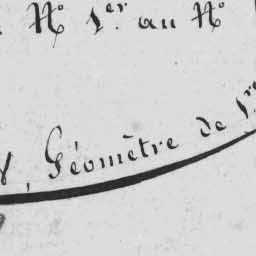 N° 1er. au N°
, Géomètre de 1re